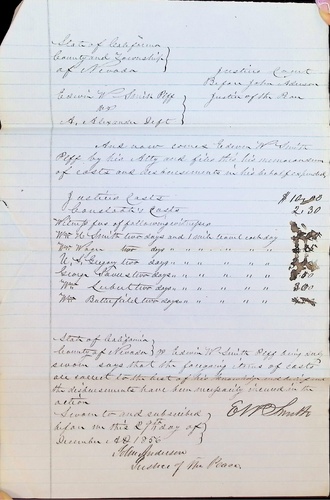 State of California
County and Township
of Nevada
Justice's Court
Before John Anderson
Justice of the Peace
Edwin W Smith Plff
vs
A. Alexander Deft
And now comes Edwin W Smith
Plff by his Atty and files this his memorandum
of costs and disbursements in his behalf expended
Justice's Costs $10.00
Constable's Costs 2.30
Witness fees of following witnesses
Wm H Smith two days and 1 mile travel each day
Wm two days " " " " "
U. S. Gregory two days " " " " "
George two days " " " " "
Wm two days " " " " " 3.00
Wm Butterfield two days " " " " "
State of California
County of Nevada Edwin W Smith Plff being duly
sworn says that the foregoing items of costs
are correct to the best of his knowledge and
the disbursements have been necessarily incurred in the
action
Sworn to and subscribed
before me this 29th day of
December A.D. 1856
E W Smith
John Anderson
Justice of the Peace